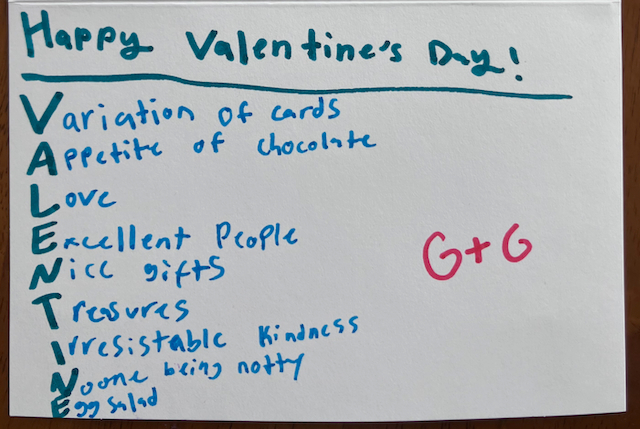 Happy Valentine's Day!
Variation of cards
Appetite of chocolate
Love
Excellent People
Nice gifts
Treasures
Irresistable Kindness
Noone being notty
Egg salad
G+G